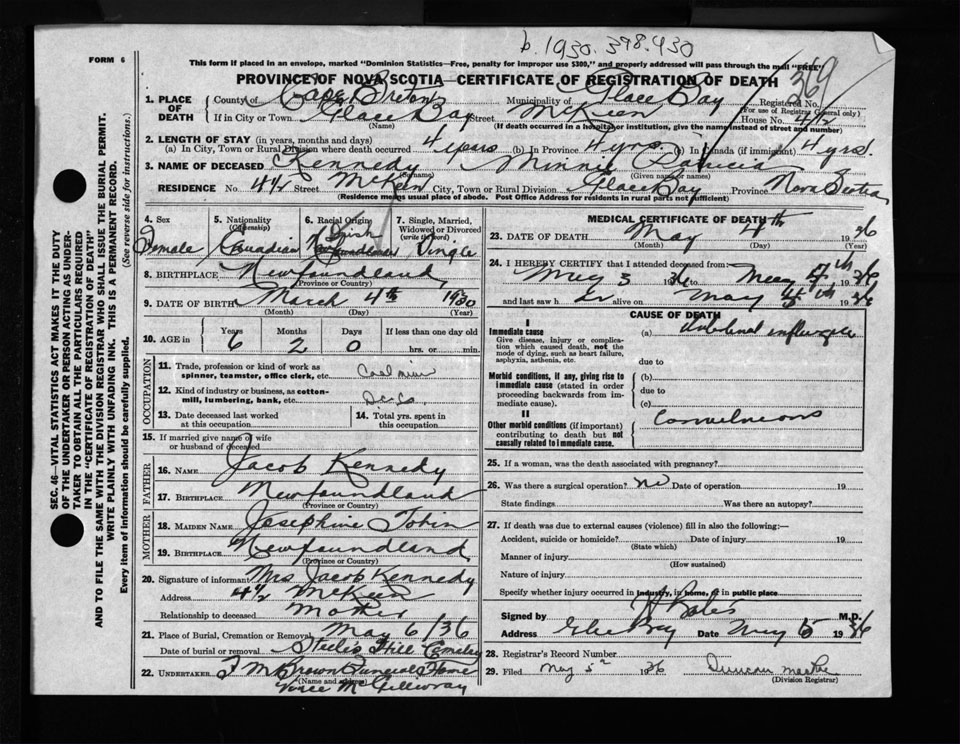 b. 1930. 398.430
369
FORM 6
This form if placed in an envelope, marked "Dominion Statistics—Free, penalty for improper use $300," and properly addressed will pass through the mail "FREE"
PROVINCE OF NOVA SCOTIA—CERTIFICATE OF REGISTRATION OF DEATH
1. PLACE OF DEATH County of Cape Breton Municipality of Glace Bay Registered No.
(For use of Registrar General only)
If in City or Town Glace Bay (Name) Street McKeen House No. 4 1/2
(If death occurred in a hospital or institution, give the name instead of street and number)
2. LENGTH OF STAY (in years, months and days)
(a) In City, Town or Rural Division where death occurred 4 years (b) In Province 4 yrs. (c) in Canada (if immigrant) 4 yrs.
3. NAME OF DECEASED Kennedy Minnie
(Surname) (Given name or names)
RESIDENCE No. 4 1/2 Street McKeen City, Town or Rural Division Glace Bay Province Nova Scotia
(Residence means usual place of abode. Post Office Address for residents in rural parts not sufficient)
4. Sex Female
5. Nationality (Citizenship) Canadian
6. Racial Origin Irish Newfoundlander
7. Single, Married, Widowed or Divorced (write the word) Single
8. BIRTHPLACE Newfoundland
(Province or Country)
9. DATE OF BIRTH March 4th 1930
(Month) (Day) (Year)
10. AGE in Years 6 Months 2 Days 0 If less than one day old
hrs. or min.
OCCUPATION
11. Trade, profession or kind of work as spinner, teamster, office clerk, etc.
12. Kind of industry or business, as cotton-mill, lumbering, bank, etc.
13. Date deceased last worked at this occupation
14. Total yrs. spent in this occupation
15. If married give name of wife or husband of deceased
FATHER
16. NAME Jacob Kennedy
17. BIRTHPLACE Newfoundland
(Province or Country)
MOTHER
18. MAIDEN NAME Josephine Tobin
19. BIRTHPLACE Newfoundland
(Province or Country)
20. Signature of informant Mrs Jacob Kennedy
Address 4 1/2 McKeen
Relationship to deceased Mother
21. Place of Burial, Cremation or Removal May 6/36
Date of burial or removal Hill Cemetery
22. UNDERTAKER F M Brown Funeral Home
(Name and address)
McGillivray
MEDICAL CERTIFICATE OF DEATH
23. DATE OF DEATH May 4th 1936
(Month) (Day) (Year)
24. I HEREBY CERTIFY that I attended deceased from:
May 3 1936 to May 4th 1936
and last saw her alive on May 4th 1936
CAUSE OF DEATH
I
Immediate cause (a) influenza
Give disease, injury or complication which caused death, not the mode of dying, such as heart failure, asphyxia, asthenia, etc.
due to
Morbid conditions, if any, giving rise to immediate cause (stated in order proceeding backwards from immediate cause).
(b)
due to
(c)
II
Other morbid conditions (if important) contributing to death but not causally related to immediate cause.
Convulsions
25. If a woman, was the death associated with pregnancy?
26. Was there a surgical operation? no Date of operation 19
State findings Was there an autopsy?
27. If death was due to external causes (violence) fill in also the following:—
Accident, suicide or homicide? Date of injury 19
(State which)
Manner of injury
(How sustained)
Nature of injury
Specify whether injury occurred in industry, in home, or in public place
Signed by H Bates M.D.
Address Glace Bay Date May 5 1936
28. Registrar's Record Number
29. Filed May 5 1936 Duncan
(Division Registrar)
SEC. 46—VITAL STATISTICS ACT MAKES IT THE DUTY
OF THE UNDERTAKER OR PERSON ACTING AS UNDER-
TAKER TO OBTAIN ALL THE PARTICULARS REQUIRED
IN THE "CERTIFICATE OF REGISTRATION OF DEATH"
AND TO FILE THE SAME WITH THE DIVISION REGISTRAR WHO SHALL ISSUE THE BURIAL PERMIT.
WRITE PLAINLY WITH UNFADING INK. THIS IS A PERMANENT RECORD.
Every item of information should be carefully supplied. (See reverse side for instructions.)